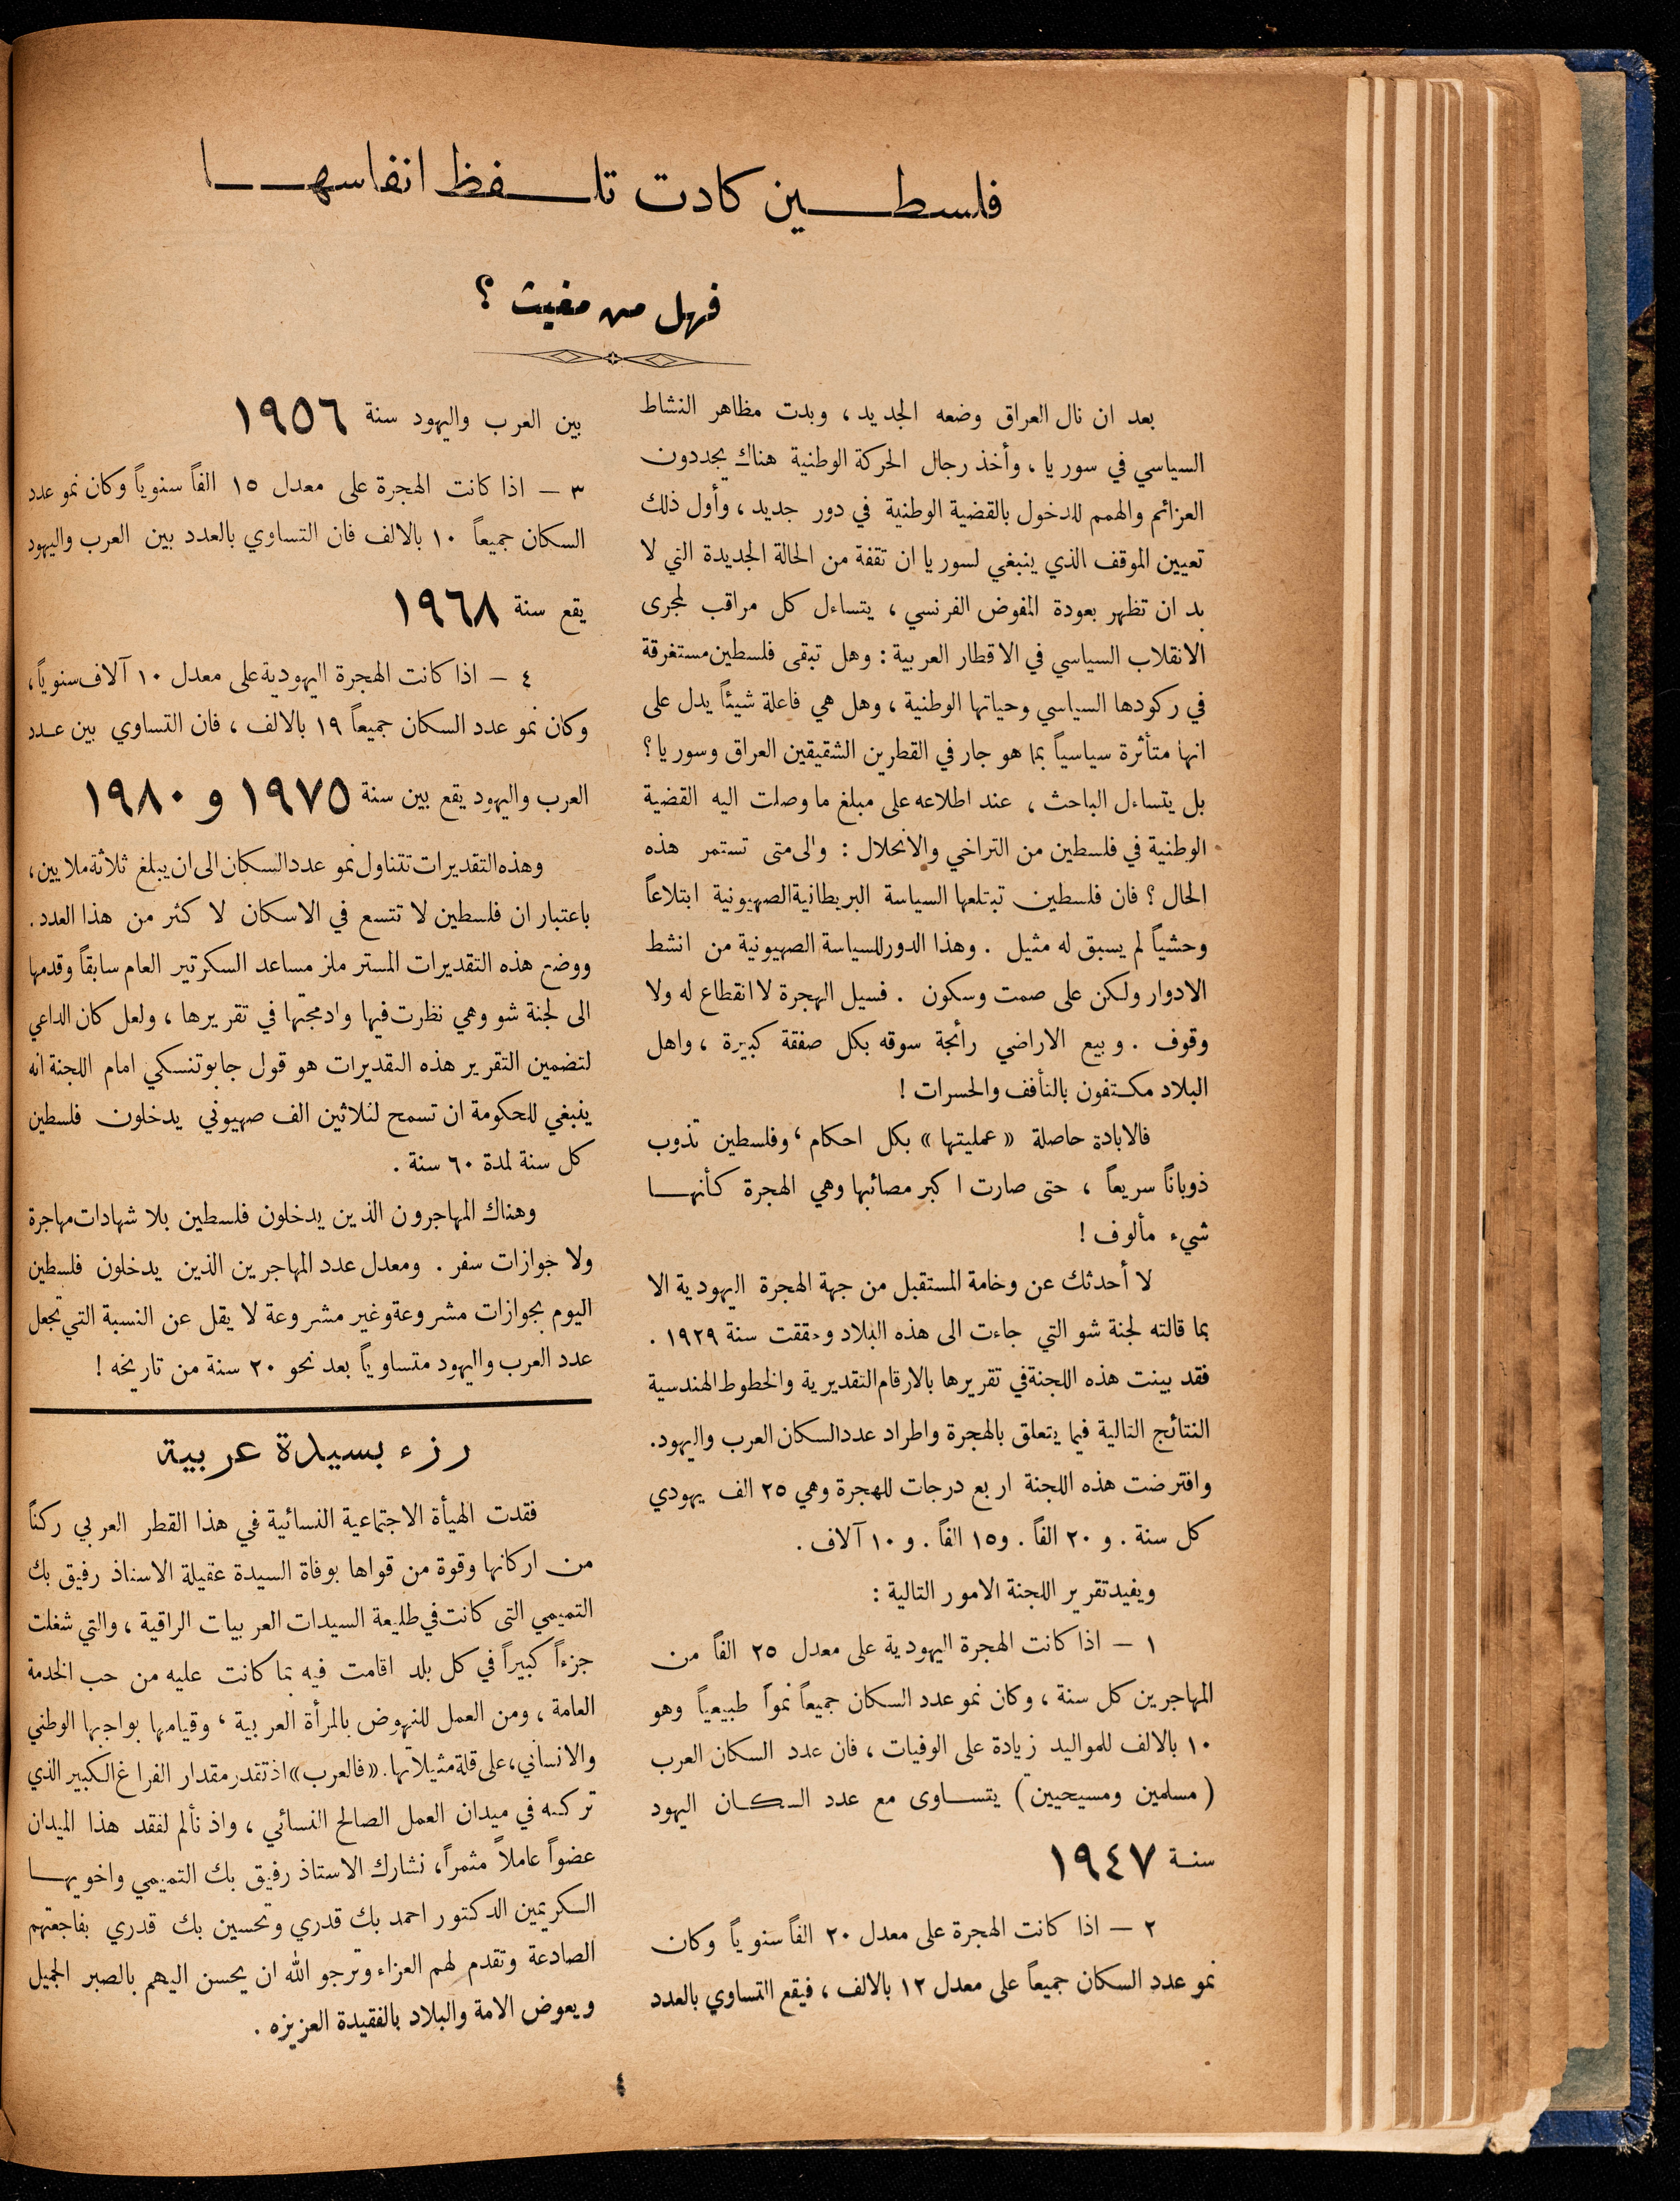 فلسطين كادت تلفظ انفاسها
فهل من مغيث ؟
بعد ان نال العراق وضعه الجديد ، وبدت مظاهر النشاط
السياسي في سوريا ، وأخذ رجال الحركة الوطنية هناك يجددون
العزائم والهمم للدخول بالقضية الوطنية في دور جديد ، وأول ذلك
تعيين الموقف الذي ينبغي لسوريا ان تقفة من الحالة الجديدة التي لا
بد ان تظهر بعودة المفوض الفرنسي ، يتساءل كل مراقب لمجرى
الانقلاب السياسي في الاقطار العربية : وهل تبقى فلسطين مستغرقة
في ركودها السياسي وحياتها الوطنية ، وهل هي فاعلة شيئاً يدل على
انها متأثرة سياسياً بما هو جار في القطرين الشقيقين العراق وسوريا ؟
بل يتساءل الباحث ، عند اطلاعه على مبلغ ما وصلت اليه القضية
الوطنية في فلسطين من التراخي والانحلال : والى متى تستمر هذه
الحال ؟ فان فلسطين تبتلعها السياسة البريطانية الصهيونية ابتلاعاً
وحشياً لم يسبق له مثيل . وهذا الدور للسياسة الصهيونية من انشط
الادوار ولكن على صمت وسكون . فسيل الهجرة لا انقطاع له ولا
وقوف . وبيع الاراضي رائجة سوقه بكل صفقة كبيرة ، واهل
البلاد مكتفون بالتأفف والحسرات !
فالابادة حاصلة « عمليتها » بكل احكام ، وفلسطين تذوب
ذوباناً سريعاً ، حتى صارت اكبر مصائبها وهي الهجرة كأنها
شيء مألوف !
لا أحدثك عن وخامة المستقبل من جهة الهجرة اليهودية الا
بما قالته لجنة شو التي جاءت الى هذه البلاد وحققت سنة ١٩٢٩ .
فقد بينت هذه اللجنة في تقريرها بالارقام التقديرية والخطوط الهندسية
النتائج التالية فيما يتعلق بالهجرة واطراد عدد السكان العرب واليهود.
وافترضت هذه اللجنة اربع درجات للهجرة وهي ٢٥ الف يهودي
كل سنة . و ٢٠ الفاً . و١٥ الفاً . و ١٠ آلاف .
ويفيد تقرير اللجنة الامور التالية :
١ – اذا كانت الهجرة اليهودية على معدل ٢٥ الفاً من
المهاجرين كل سنة ، وكان نمو عدد السكان جميعاً نمواً طبيعياً وهو
١٠ بالالف للمواليد زيادة على الوفيات ، فان عدد السكان العرب
( مسلمين ومسيحيين ) يتساوى مع عدد السكان اليهود
سنة ١٩٤٧
٢ – اذا كانت الهجرة على معدل ٢٠ الفاً سنوياً وكان
نمو عدد السكان جميعاً على معدل ١٢ بالالف ، فيقع التساوي بالعدد
بين العرب واليهود سنة ١٩٥٦
٣ – اذا كانت الهجرة على معدل ١٥ الفاً سنوياً وكان نمو عدد
السكان جميعاً ١٠ بالالف فان التساوي بالعدد بين العرب واليهود
يقع سنة ١٩٦٨
٤ – اذا كانت الهجرة اليهودية على معدل ١٠ آلاف سنوياً ،
وكان نمو عدد السكان جميعاً ١٩ بالالف ، فان التساوي بين عدد
العرب واليهود يقع بين سنة ١٩٧٥ و ١٩٨٠
وهذه التقديرات تتناول نمو عدد السكان الى ان يبلغ ثلاثة ملايين ،
باعتبار ان فلسطين لا تتسع في الاسكان لاكثر من هذا العدد .
ووضع هذه التقديرات المستر ملز مساعد السكرتير العام سابقاً وقدمها
الى لجنة شو وهي نظرت فيها وادمجتها في تقريرها ، ولعل كان الداعي
لتضمين التقرير هذه التقديرات هو قول جابوتنسكي امام اللجنة انه
ينبغي للحكومة ان تسمح لثلاثين الف صهيوني يدخلون فلسطين
كل سنة لمدة ٦٠ سنة .
وهناك المهاجرون الذين يدخلون فلسطين بلا شهادات مهاجرة
ولا جوازات سفر . ومعدل عدد المهاجرين الذين يدخلون فلسطين
اليوم بجوازات مشروعة وغير مشروعة لا يقل عن النسبة التي تجعل
عدد العرب واليهود متساوياً بعد نحو ٢٠ سنة من تاريخه !
رزء بسيدة عربية
فقدت الهيأة الاجتماعية النسائية في هذا القطر العربي ركناً
من اركانها وقوة من قواها بوفاة السيدة عقيلة الاستاذ رفيق بك
التميمي التي كانت في طليعة السيدات العربيات الراقية ، والتي شغلت
جزءاً كبيراً في كل بلد اقامت فيه بما كانت عليه من حب الخدمة
العامة ، ومن العمل للنهوض بالمرأة العربية ، وقيامها بواجبها الوطني
والانساني ، على قلة مثيلاتها . « فالعرب » اذ تقدر مقدار الفراغ الكبير الذي
تركته في ميدان العمل الصالح النسائي ، واذ نألم لفقد هذا الميدان
عضواً عاملاً مثمراً ، نشارك الاستاذ رفيق بك التميمي واخويها
الكريمين الدكتور احمد بك قدري وتحسين بك قدري بفاجعتهم
الصادعة وتقدم لهم العزاء وترجو الله ان يحسن اليهم بالصبر الجميل
ويعوض الامة والبلاد بالفقيدة العزيزه .
٤